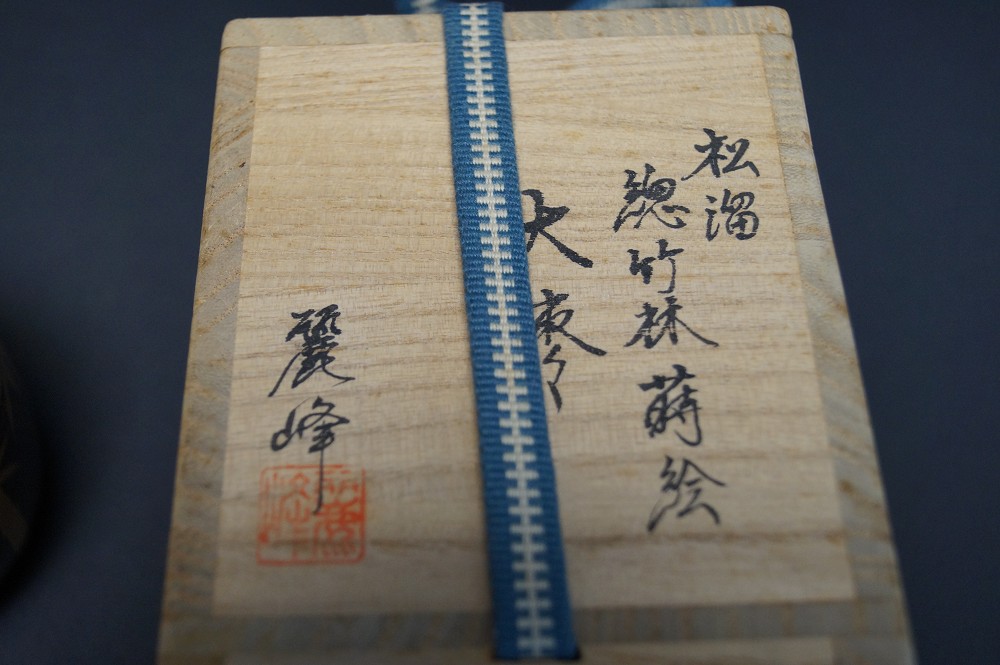 松溜
総竹林蒔絵
大棗
麗峰